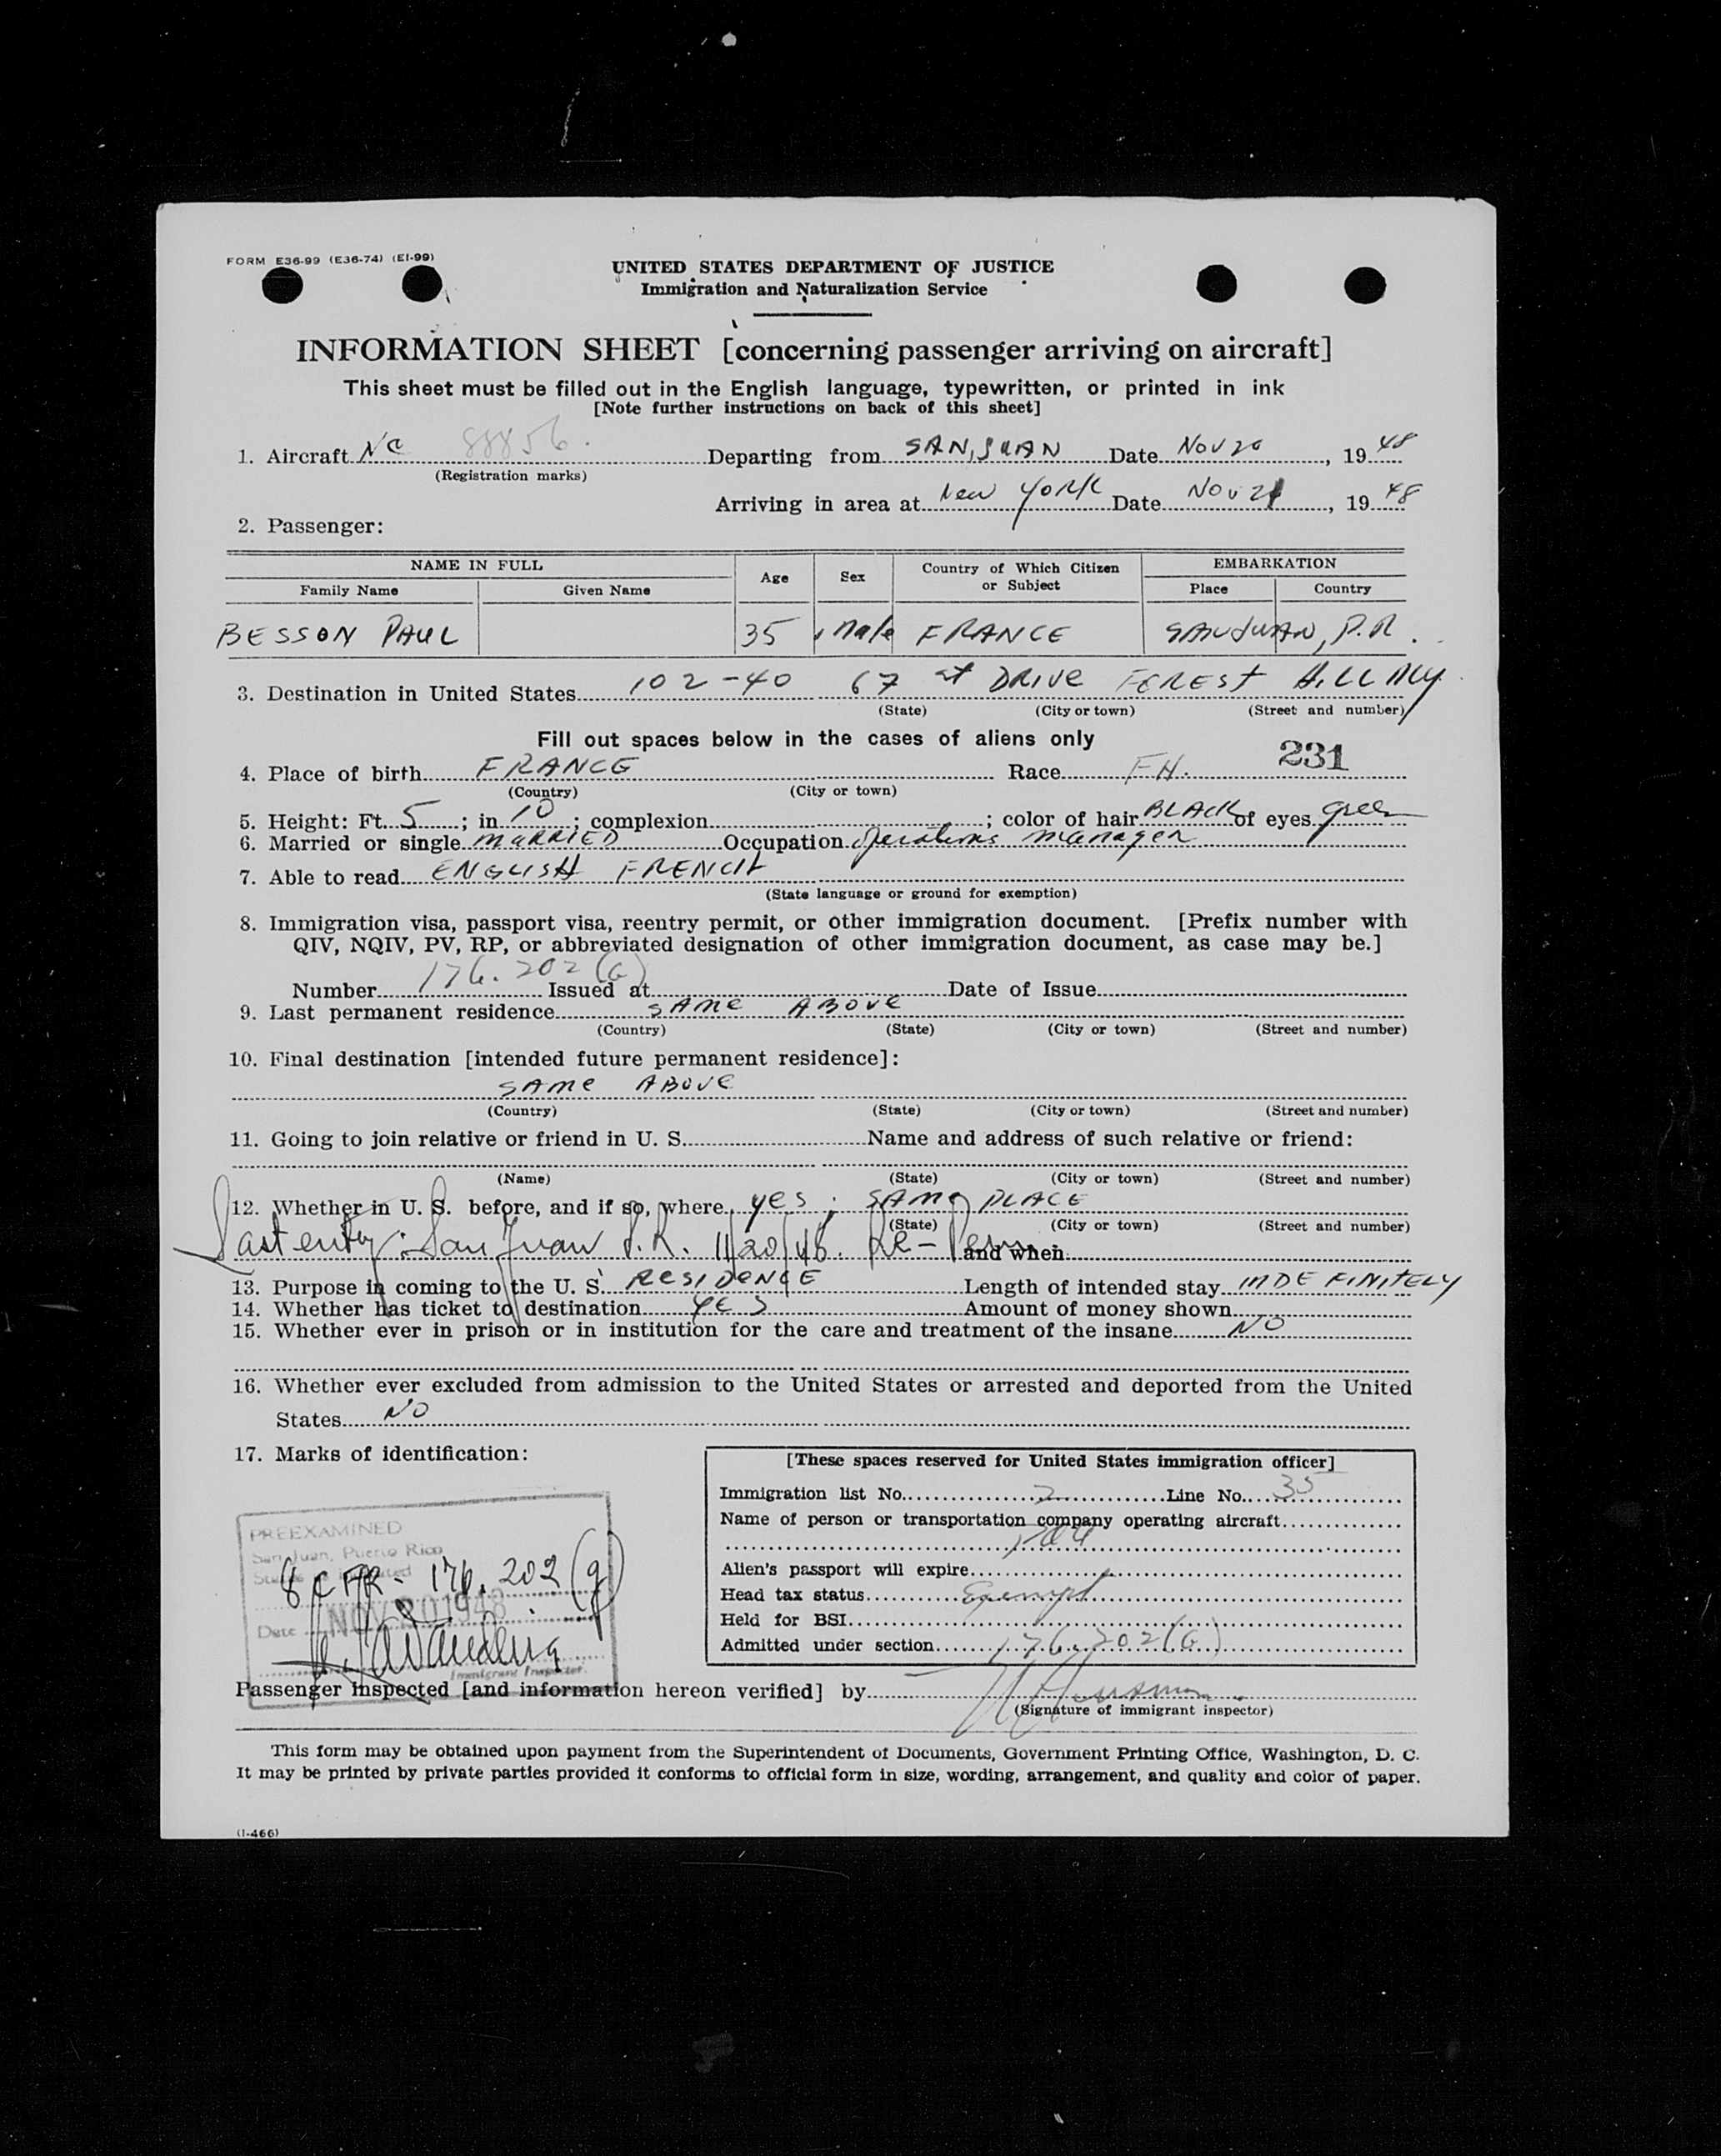 FORM E36-99 (E36-74) (EI-99)
UNITED STATES DEPARTMENT OF JUSTICE
Immigration and Naturalization Service
INFORMATION SHEET [concerning passenger arriving on aircraft]
This sheet must be filled out in the English language, typewritten, or printed in ink
[Note further instructions on back of this sheet]
1. Aircraft NC 88856. Departing from SAN, JUAN Date Nov 20, 19 48
(Registration marks)
Arriving in area at New YORK Date Nov 21, 19 48
2. Passenger:
NAME IN FULL Age Sex Country of Which Citizen or Subject EMBARKATION
Family Name Given Name Place Country
BESSON PAUL 35 Male FRANCE SAN JUAN, P.R.
3. Destination in United States 102-40 67 st DRIVE FOREST HILL NY
(State) (City or town) (Street and number)
Fill out spaces below in the cases of aliens only
231
4. Place of birth FRANCE Race FH.
(Country) (City or town)
5. Height: Ft. 5; in 10; complexion; color of hair BLACK of eyes green
6. Married or single MARRIED Occupation operations manager
7. Able to read ENGLISH FRENCH
(State language or ground for exemption)
8. Immigration visa, passport visa, reentry permit, or other immigration document. [Prefix number with
QIV, NQIV, PV, RP, or abbreviated designation of other immigration document, as case may be.]
Number 176.202(G) Issued at Date of Issue
9. Last permanent residence SAME ABOVE
(Country) (State) (City or town) (Street and number)
10. Final destination [intended future permanent residence]:
SAME ABOVE
(Country) (State) (City or town) (Street and number)
11. Going to join relative or friend in U. S. Name and address of such relative or friend:
(Name) (State) (City or town) (Street and number)
12. Whether in U. S. before, and if so, where yes; SAME PLACE
(State) (City or town) (Street and number)
Last entry: San Juan P.R. 11/20/48. Re- and when
13. Purpose in coming to the U. S. RESIDENCE Length of intended stay INDEFINITELY
14. Whether has ticket to destination YES Amount of money shown
15. Whether ever in prison or in institution for the care and treatment of the insane NO
16. Whether ever excluded from admission to the United States or arrested and deported from the United
States NO
17. Marks of identification:
[These spaces reserved for United States immigration officer]
Immigration list No. 2 Line No. 35
Name of person or transportation company operating aircraft
Alien's passport will expire
Head tax status Exempt
Held for BSI
Admitted under section 176.202(G)
PREEXAMINED
San Juan, Puerto Rico
8 CFR- 176.202(g)
Date NOV 20 1948
Immigrant Inspector.
Passenger inspected [and information hereon verified] by
(Signature of immigrant inspector)
This form may be obtained upon payment from the Superintendent of Documents, Government Printing Office, Washington, D. C.
It may be printed by private parties provided it conforms to official form in size, wording, arrangement, and quality and color of paper.
(I-466)